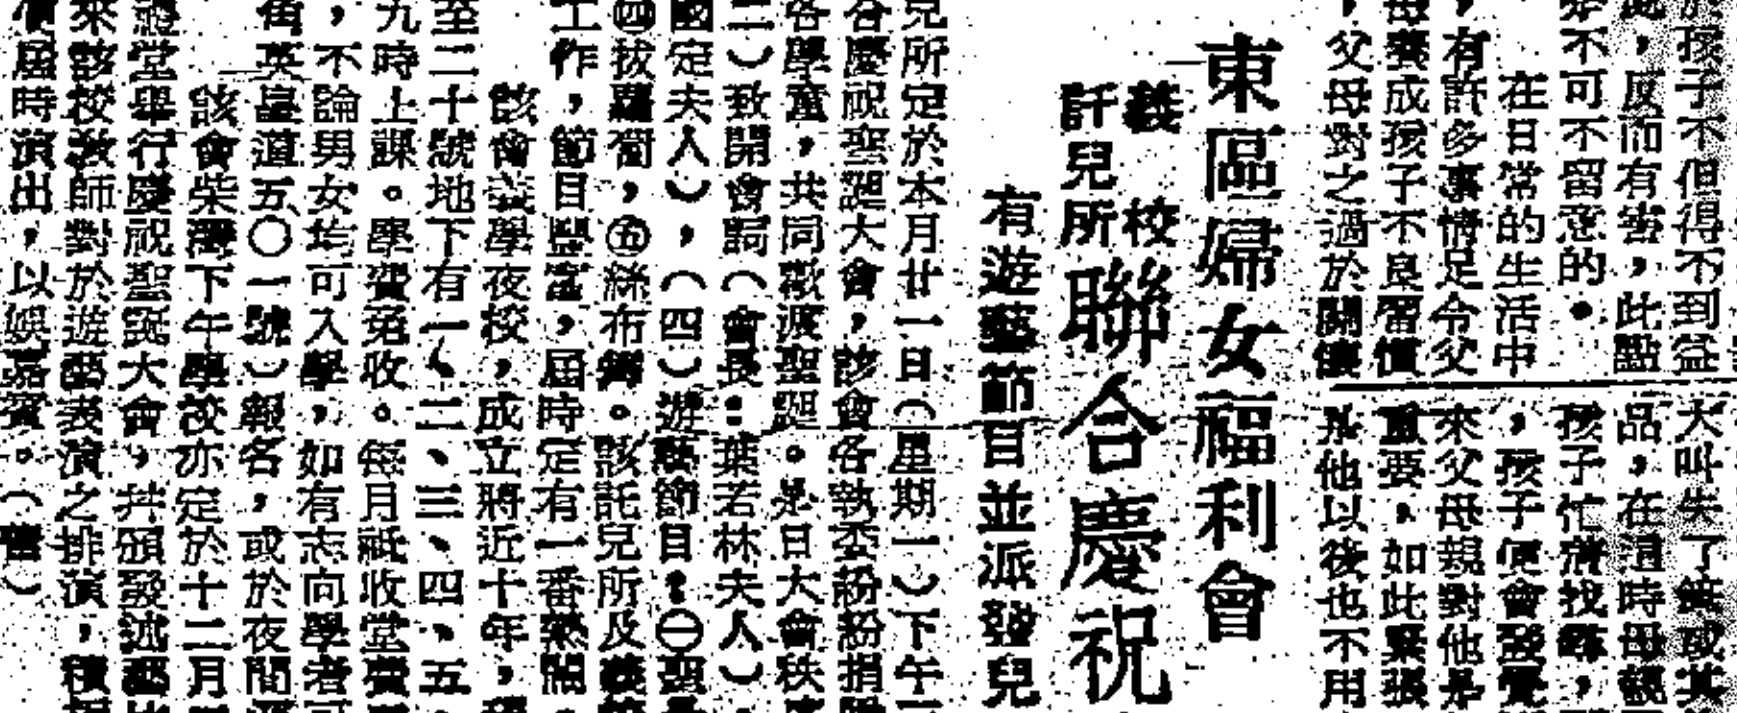 於孩子不但得不到益
此，反而有害，此點
不可不留意的。
在日常的生活中
，有許多事情足令父
母養成孩子不良習慣
，父母對之過於關懷
大叫失了
品，在這時母親
孩子忙着找尋，
，孩子便會發覺
來父母親對他是
重要，如此緊張
他以後也不用
東區婦女福利會
義校
託兒所聯合慶祝
有遊藝節目並派發兒
兒所定於本月廿一日（星期一）下午
合慶祝聖誕大會，該會各執委紛紛捐
各學童，共同歡渡聖誕。是日大會秩
二）致開會詞（會長：葉若林夫人）
國定夫人），（四）遊藝節目：㊀聖
㊃拔蘿蔔，㊄絲布舞。該託兒所及義
工作，節目豐富，屆時定有一番熱鬧
該會義學夜校，成立將近十年，
至二十號地下有一、二、三、四、五
九時上課。學費免收。每月祗收堂費
，不論男女均可入學，如有志向學者可
角英皇道五〇一號）報名，或於夜間
該會柴灣下午學校亦定於十二月
禮堂舉行慶祝聖誕大會，共頒發
來該校教師對於遊藝表演之排演，積
屆時演出，以娛嘉賓。（